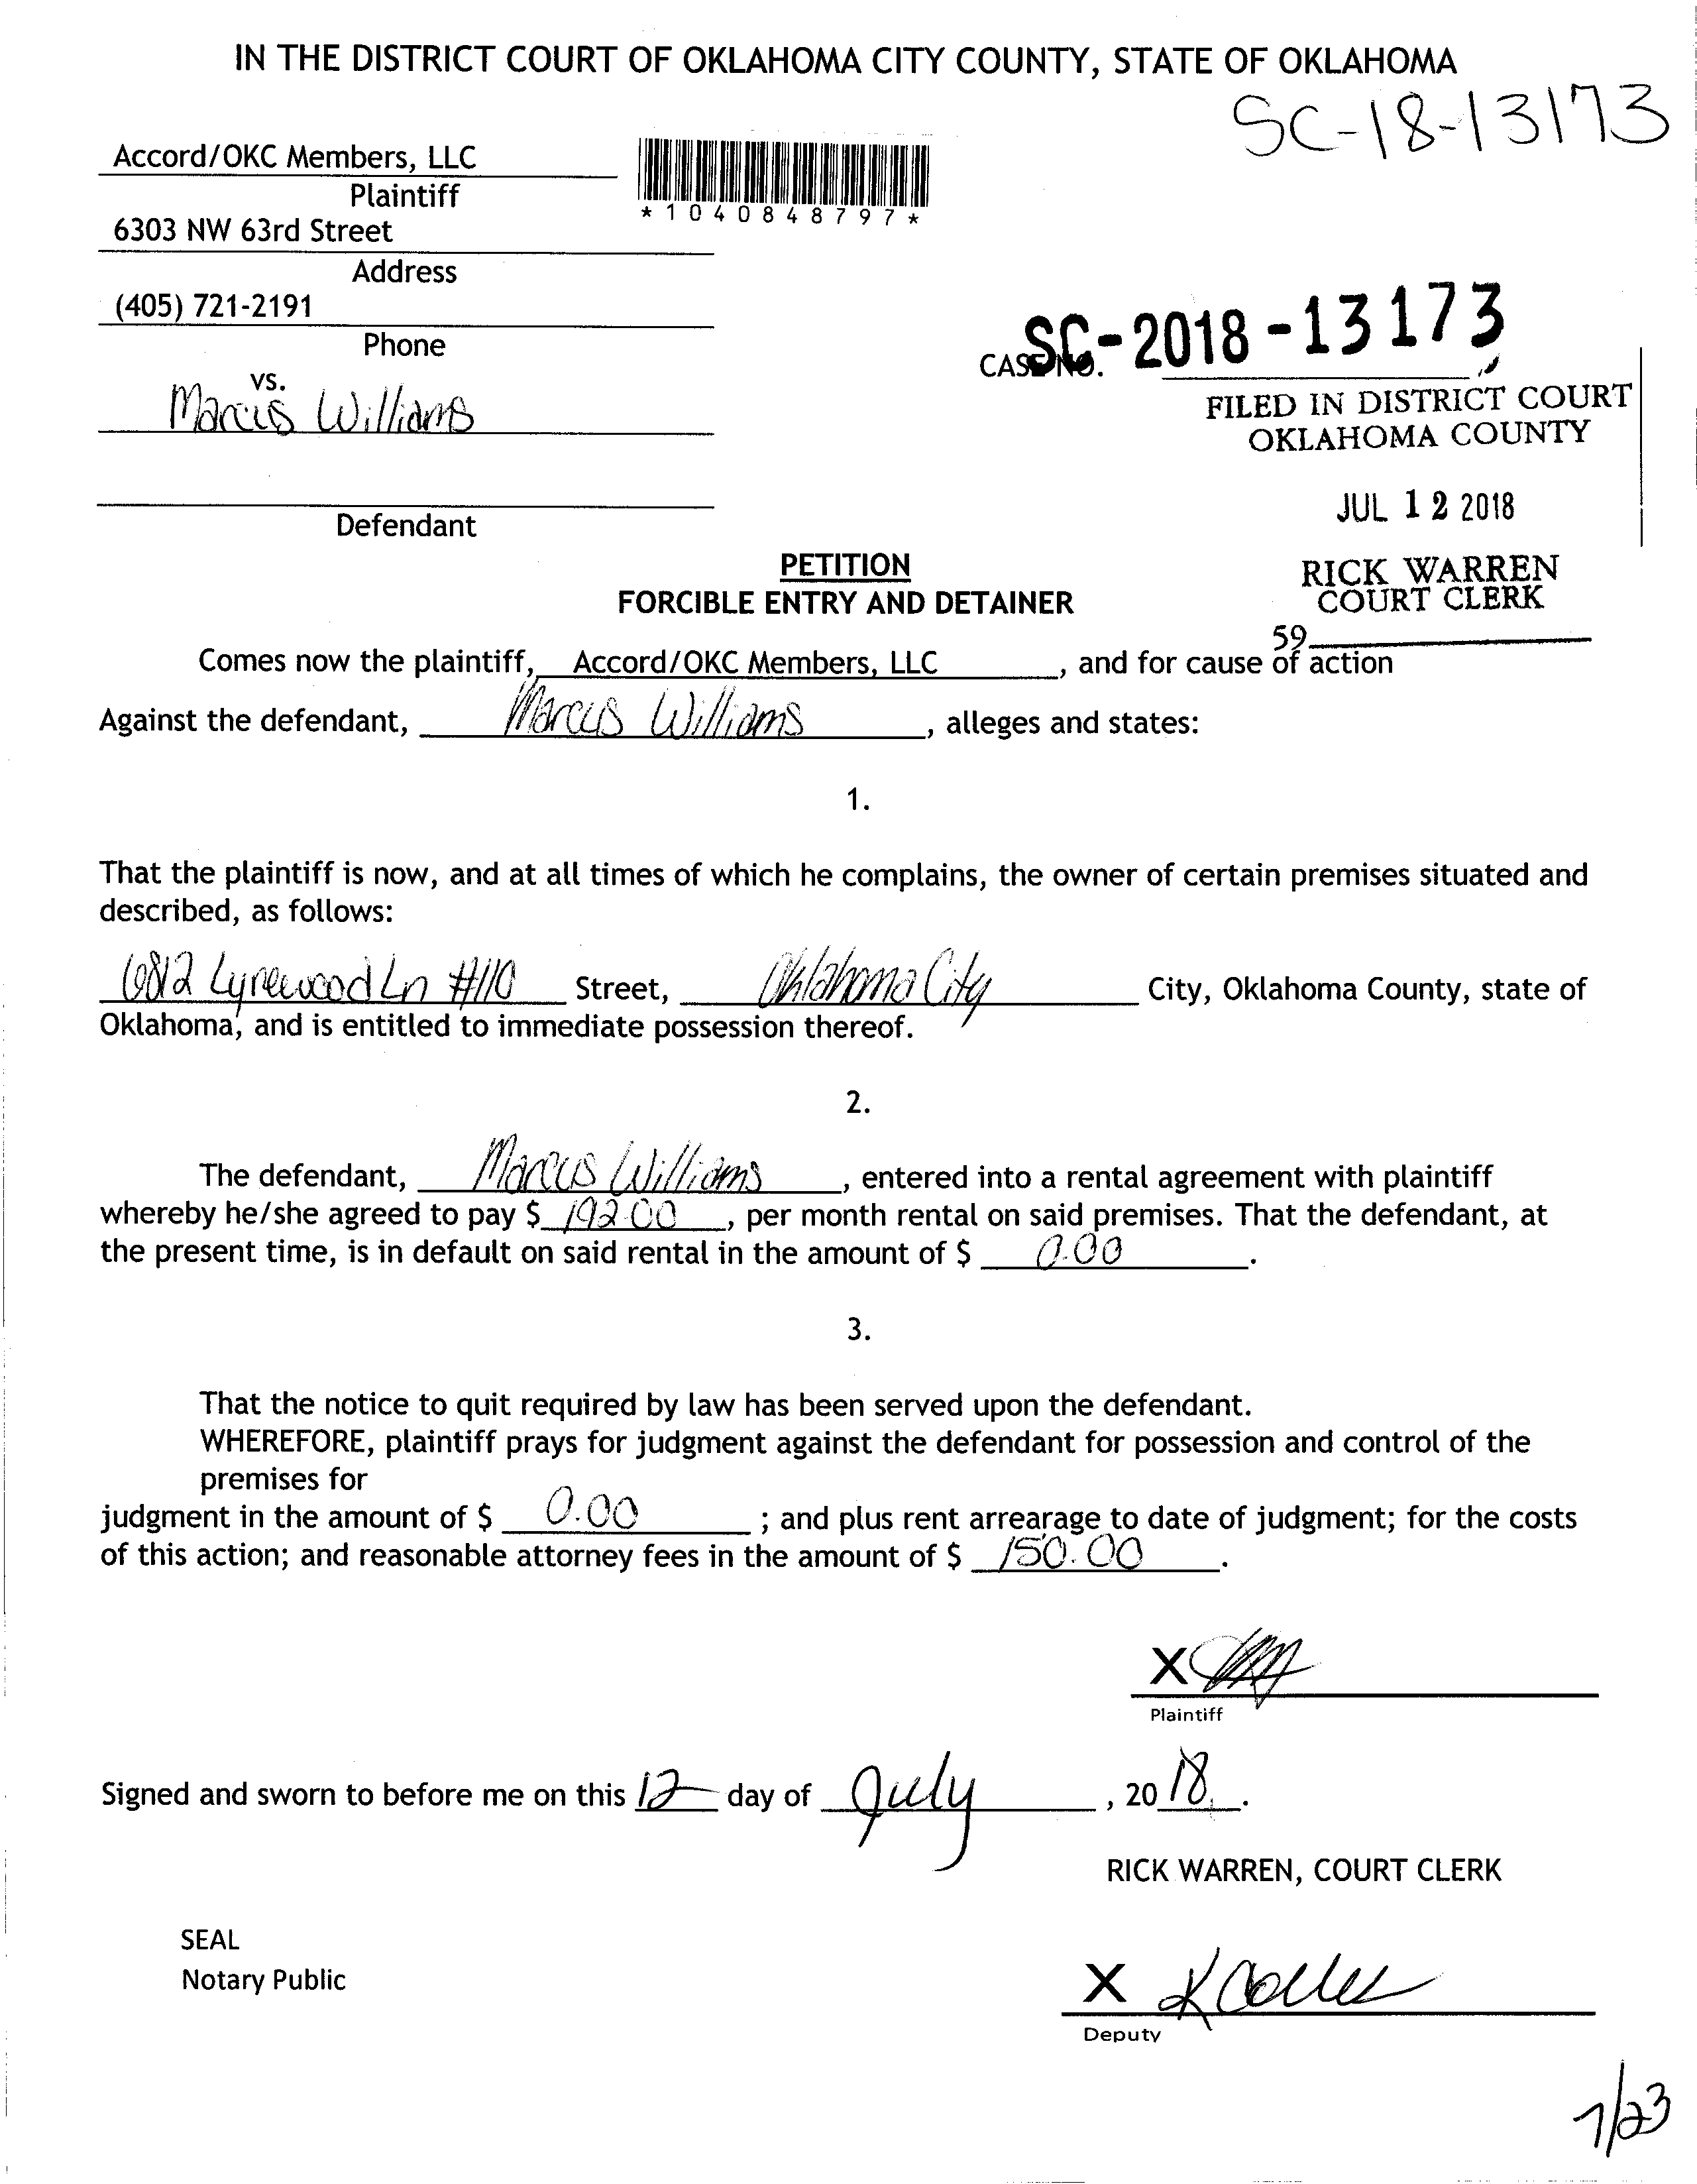 IN THE DISTRICT COURT OF OKLAHOMA CITY COUNTY, STATE OF OKLAHOMA
SC-18-13173
Accord/OKC Members, LLC
Plaintiff
*1040848797*
6303 NW 63rd Street
Address
(405) 721-2191
Phone
CASE NO. SC-2018-13173
vs.
Marcus Williams
FILED IN DISTRICT COURT
OKLAHOMA COUNTY
JUL 12 2018
Defendant
PETITION
RICK WARREN
COURT CLERK
FORCIBLE ENTRY AND DETAINER
59
Comes now the plaintiff, Accord/OKC Members, LLC, and for cause of action
Against the defendant, Marcus Williams, alleges and states:
1.
That the plaintiff is now, and at all times of which he complains, the owner of certain premises situated and
described, as follows:
6812 Lyrewood Ln #110 Street, Oklahoma City City, Oklahoma County, state of
Oklahoma, and is entitled to immediate possession thereof.
2.
The defendant, Marcus Williams, entered into a rental agreement with plaintiff
whereby he/she agreed to pay $ 192.00, per month rental on said premises. That the defendant, at
the present time, is in default on said rental in the amount of $ 0.00.
3.
That the notice to quit required by law has been served upon the defendant.
WHEREFORE, plaintiff prays for judgment against the defendant for possession and control of the
premises for
judgment in the amount of $ 0.00 ; and plus rent arrearage to date of judgment; for the costs
of this action; and reasonable attorney fees in the amount of $ 150.00.
X
Plaintiff
Signed and sworn to before me on this 12 day of July, 2018.
RICK WARREN, COURT CLERK
SEAL
Notary Public
X K
Deputy
7/23